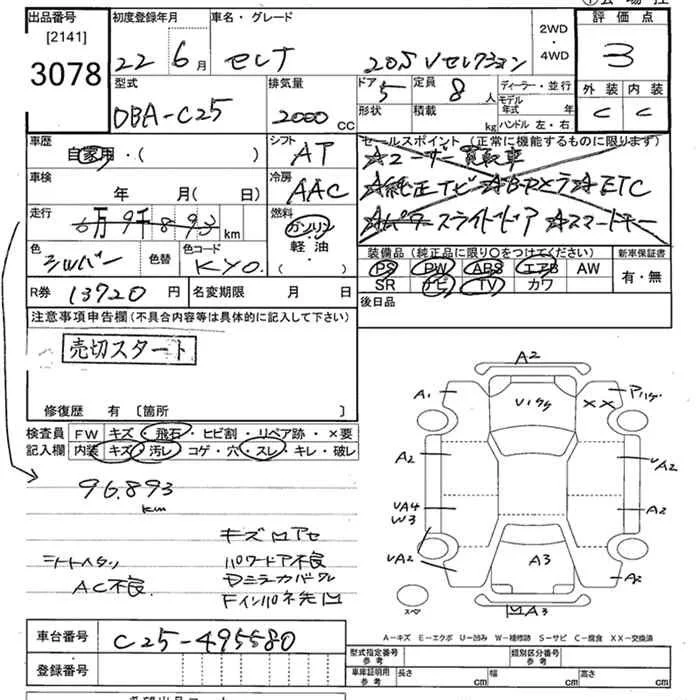 出品番号
[2141]
3078
初度登録年月
22 6月
車名・グレード
セレナ 20S Vセレクション
2WD
・
4WD
評価点
3
型式
DBA-C25
排気量
2000 CC
ドア
5
形状
定員
8人
積載
kg
ディーラー・並行
モデル年式 年
ハンドル 左・右
外装 内装
C C
車歴
自家用・( )
シフト
AT
車検
年 月( 日)
冷房
AAC
走行
6万9千893 km
燃料
ガソリン
軽油
・( )
色
シルバー
色替
色コード
KY0
セールスポイント(正常に機能するものに限ります)
☆ユーザー買取車
☆純正TV☆Bカメラ☆ETC
☆パワースライドドア☆スマートキー
装備品(純正品に限り○をつけてください)
PS PW ABS エアB AW
SR ナビ TV カワ
新車保証書
有・無
後日品
R券 13720円
名変期限 月 日
注意事項申告欄(不具合内容等は具体的に記入して下さい)
売切スタート
修復歴 有 〔箇所 〕
検査員
記入欄
FW キズ・飛石・ヒビ割・リペア跡・×要
内装 キズ・汚レ・コゲ・穴・スレ・キレ・破レ
96.893
km
シートヘタリ
AC不良
パワードア不良
A2
A1
Vハクリ
アハゲ
××
A2
UA2
UA4
W3
A2
UA2
A3
A2
A3
スペア
A-キズ E-エクボ U-凹み W-補修跡 S-サビ C-腐食 XX-交換済
車台番号
C25-495580
登録番号
型式指定番号
参考
類別区分番号
参考
車庫証明用
参考
長さ cm
幅 cm
高さ cm